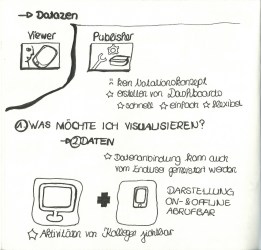 → Datazen
Viewer
Publisher
kein Notationskonzept
☆ erstellen von Dashboards
☆ schnell ☆ einfach ☆ flexibel
① WAS MÖCHTE ICH VISUALISIEREN?
→ ② DATEN
☆ Datenanbindung kann auch
vom Enduser generiert werden
DARSTELLUNG
ON- & OFFLINE
ABRUFBAR
☆ Aktivitäten von Kollegen